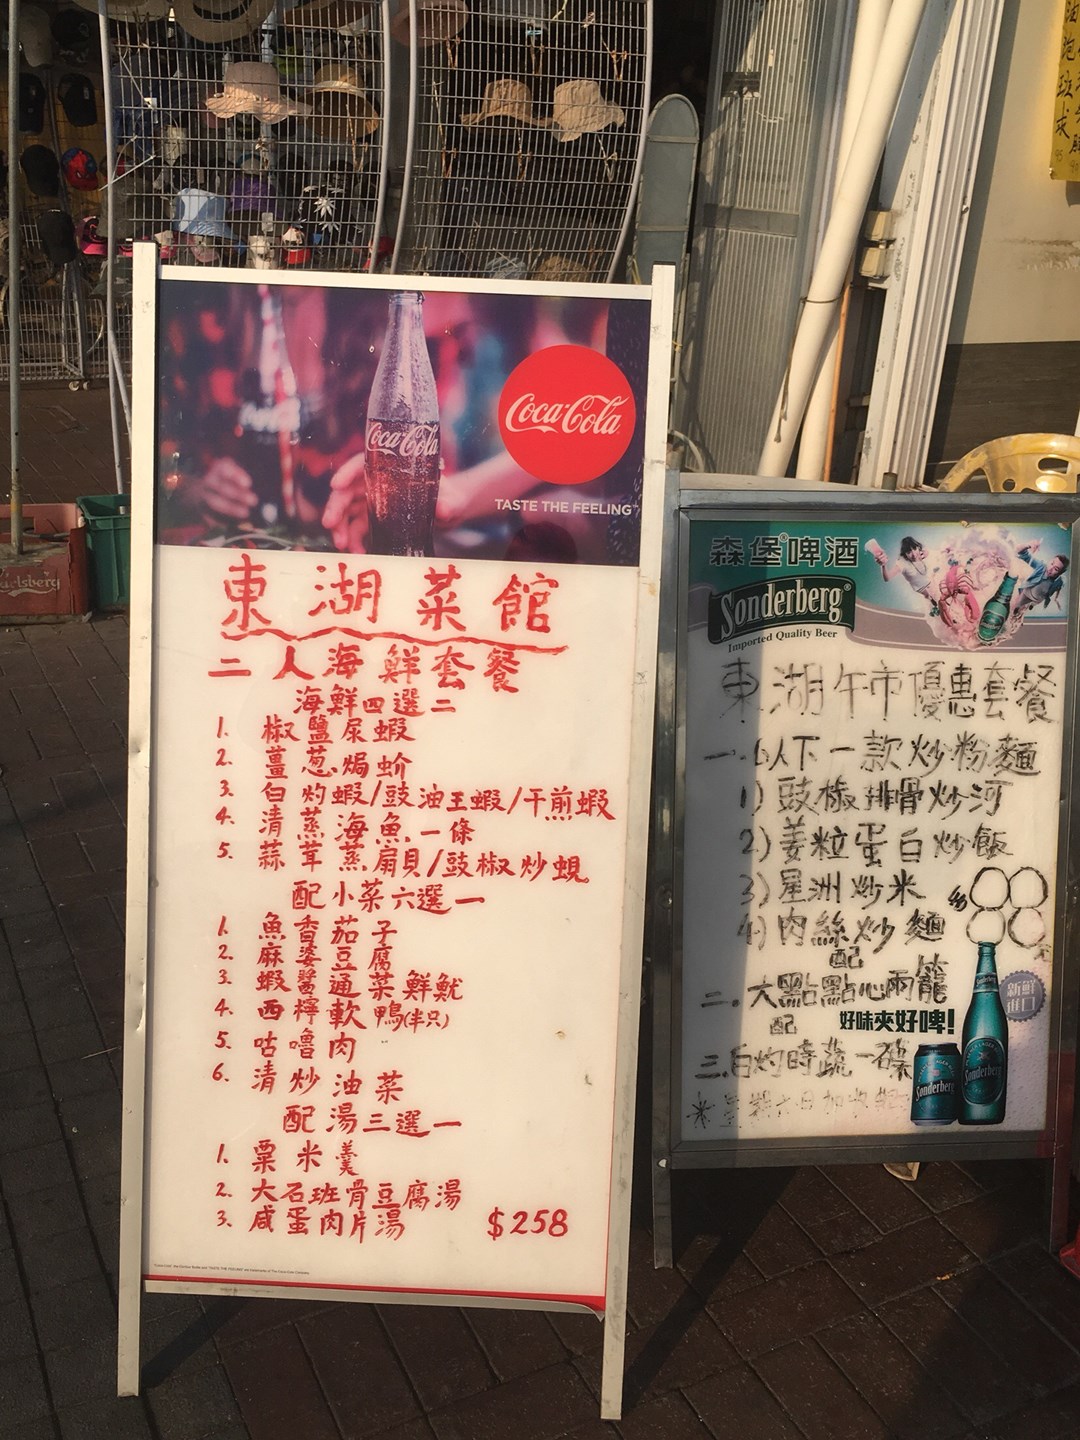 Coca-Cola
Coca-Cola
TASTE THE FEELING
東湖菜館
二人海鮮套餐
海鮮四選二
1. 椒鹽尿蝦
2. 薑葱焗蚧
3. 白灼蝦/豉油王蝦/干煎蝦
4. 清蒸海魚一條
5. 蒜茸蒸扇貝/豉椒炒蜆
配小菜六選一
1. 魚香茄子
2. 麻婆豆腐
3. 蝦醬通菜鮮魷
4. 西檸軟鴨(半只)
5. 咕嚕肉
6. 清炒油菜
配湯三選一
1. 粟米羹
2. 大石班骨豆腐湯
3. 咸蛋肉片湯
$258
森堡啤酒
Sonderberg
Imported Quality Beer
東湖午市優惠套餐
一.以下一款炒粉麵
1) 豉椒排骨炒河
2) 姜粒蛋白炒飯
3) 星洲炒米
4) 肉絲炒麵
配
二.大點點心兩籠
配
好味夾好啤!
新鮮進口
三.白灼時蔬一碟
Sonderberg
Sonderberg
Carlsberg